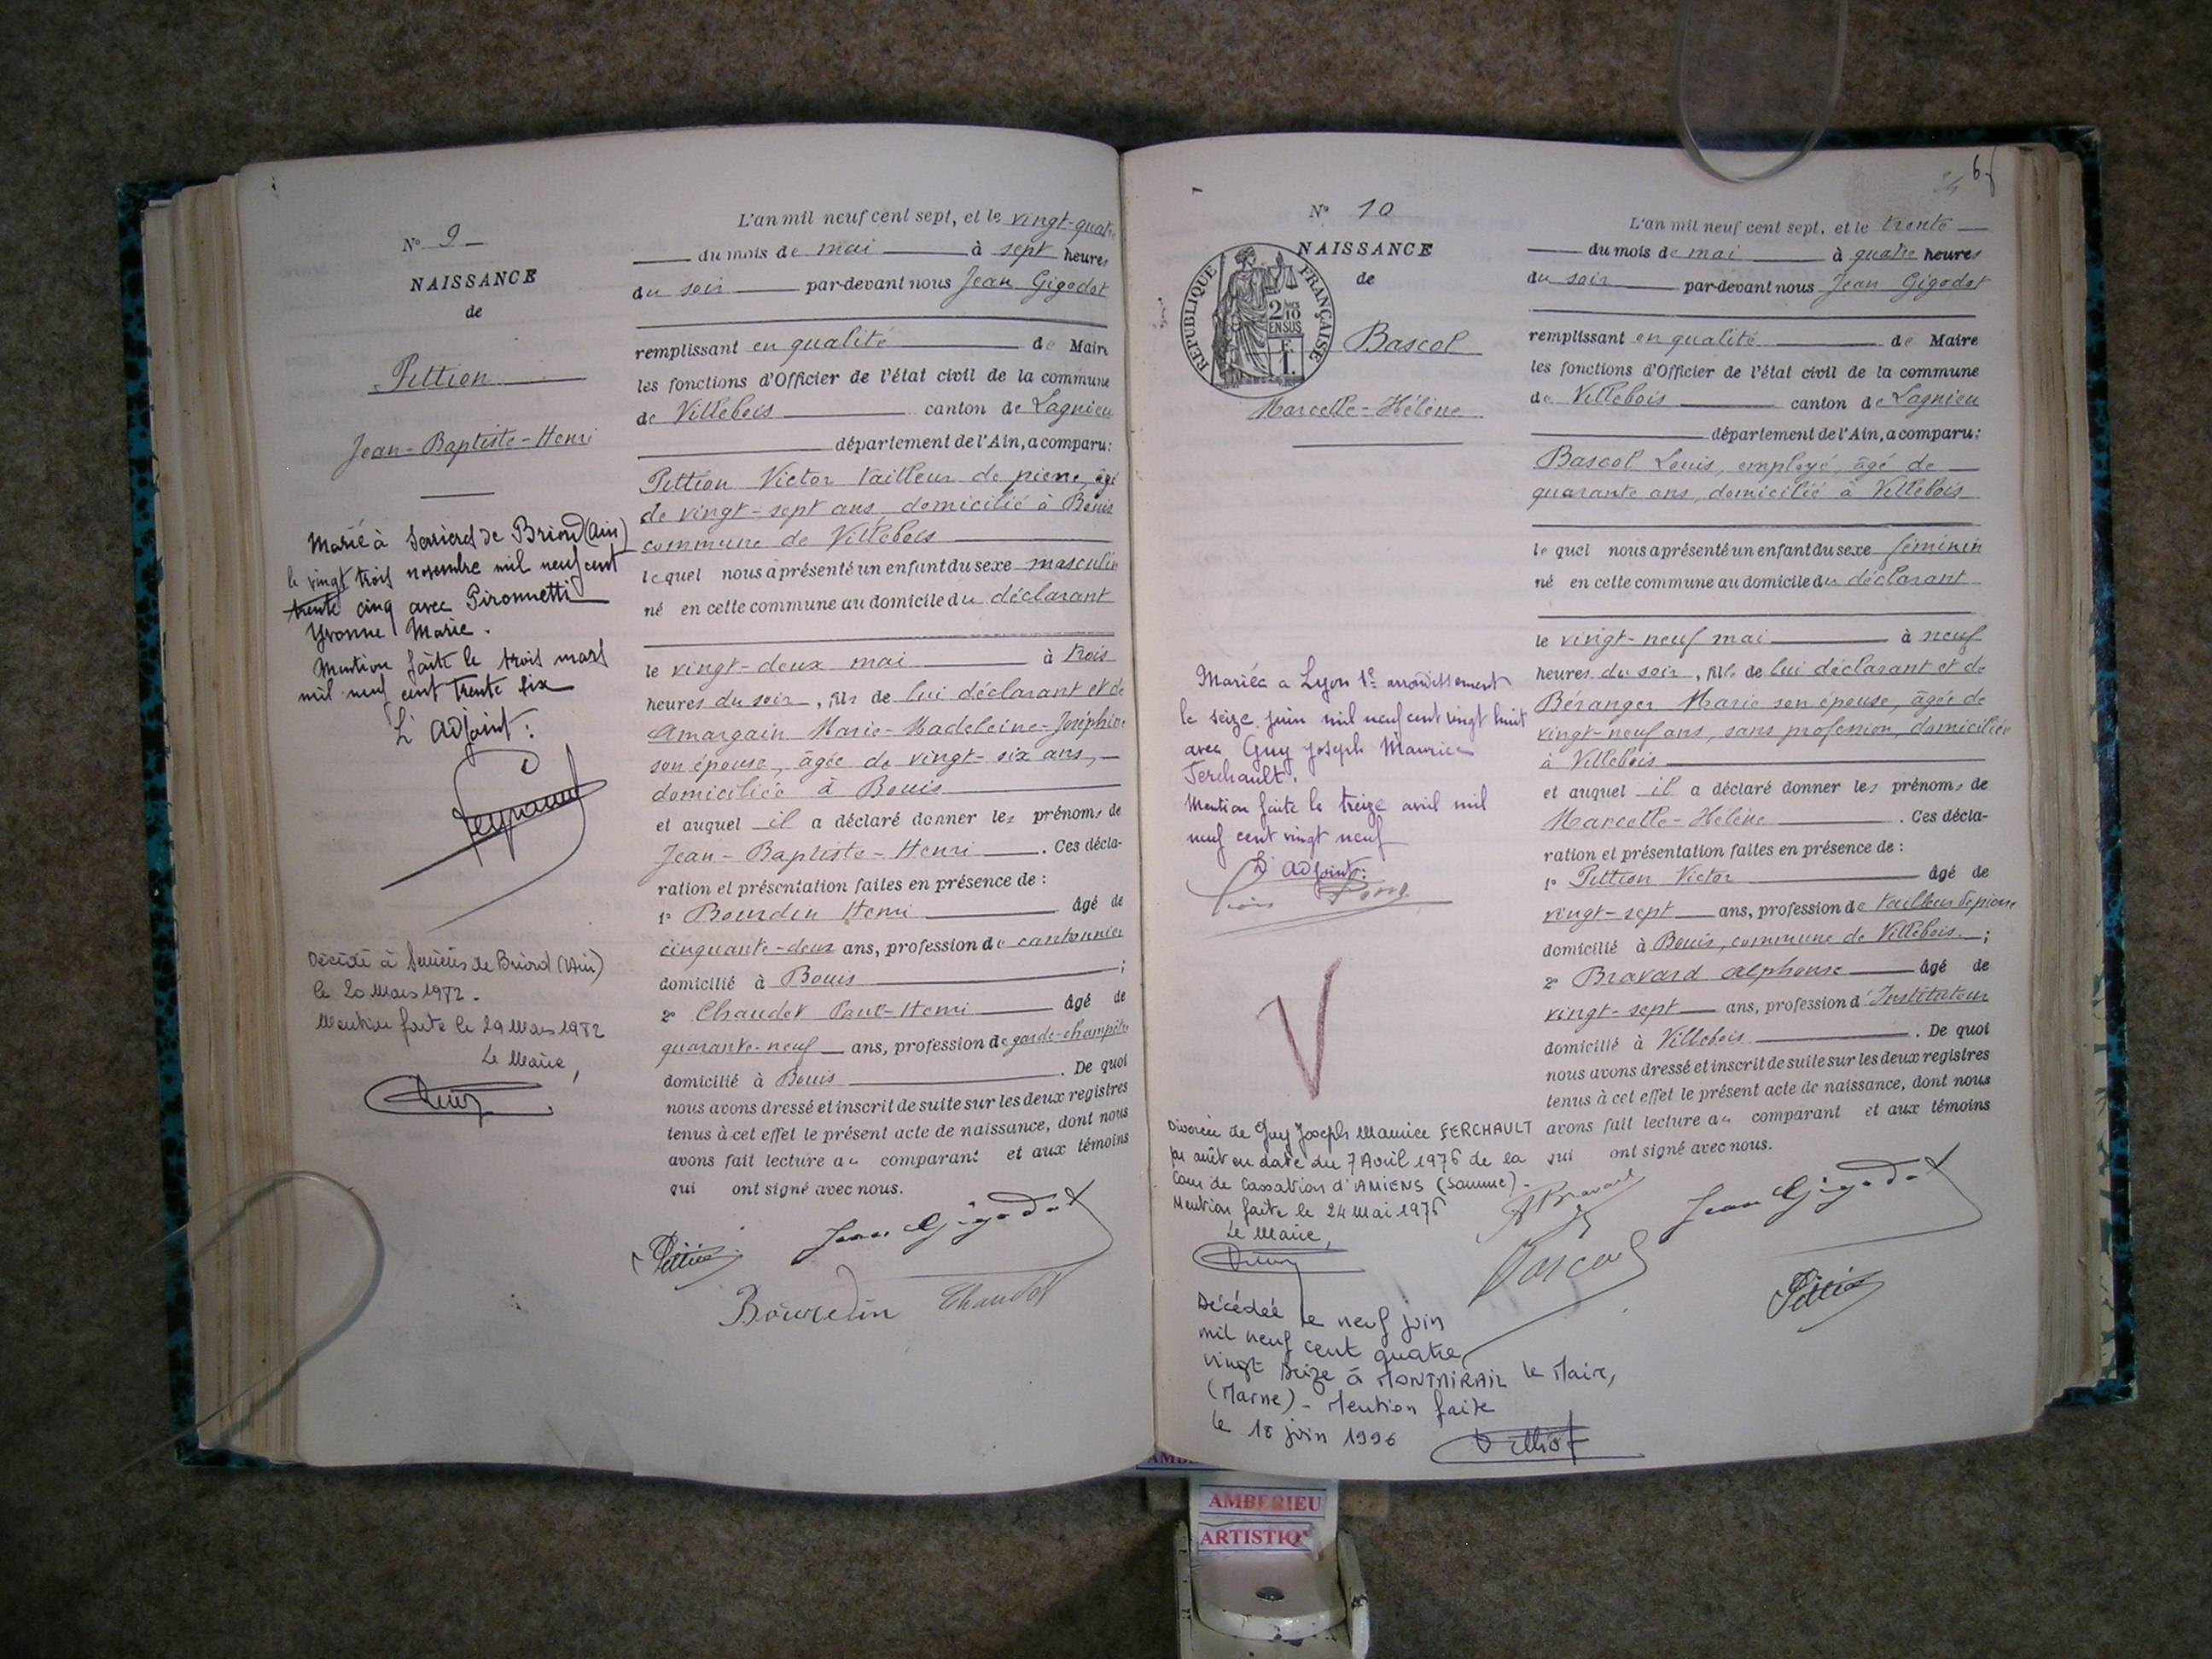 N° 9
NAISSANCE
de
Pittion
Jean-Baptiste-Henri
Marié à Serrières de Briord (Ain)
le vingt trois novembre mil neuf cent
trente cinq avec Pironnetti
Yvonne Marie.
Mention faite le trois mars
mil neuf cent trente six
L'adjoint:
Décédé à Serrières de Briord (Ain)
le 20 Mars 1972.
Mention faite le 29 Mars 1972
Le Maire,
L'an mil neuf cent sept, et le vingt-quatre
du mois de mai à sept heures
du soir par-devant nous Jean Gigodot
remplissant en qualité de Maire
les fonctions d'Officier de l'état civil de la commune
de Villebois canton de Lagnieu
département de l'Ain, a comparu:
Pittion Victor tailleur de pierre, âgé
de vingt-sept ans, domicilié à Bouis
commune de Villebois
lequel nous a présenté un enfant du sexe masculin
né en cette commune au domicile du déclarant
le vingt-deux mai à trois
heures du soir, fils de lui déclarant et de
Amargain Marie-Madeleine-Joséphine
son épouse, âgée de vingt-six ans,
domiciliée à Bouis
et auquel il a déclaré donner les prénoms de
Jean-Baptiste-Henri. Ces décla-
ration et présentation faites en présence de:
1° Bourdin Henri âgé de
cinquante-deux ans, profession de cantonnier
domicilié à Bouis;
2° Chaudet Paul-Henri âgé de
quarante-neuf ans, profession de garde-champêtre
domicilié à Bouis. De quoi
nous avons dressé et inscrit de suite sur les deux registres
tenus à cet effet le présent acte de naissance, dont nous
avons fait lecture au comparant et aux témoins
qui ont signé avec nous.
Pittion Jean Gigodot
Bourdin Chaudet
6
N° 10
NAISSANCE
de
RÉPUBLIQUE FRANÇAISE
2/10
EN SUS
Bascol
Marcelle-Hélène
Mariée a Lyon 1er arrondissement
le seize juin mil neuf cent vingt huit
avec Guy Joseph Maurice
Ferchault.
Mention faite le treize avril mil
neuf cent vingt neuf
L'adjoint:
V
Divorcée de Guy Joseph Maurice FERCHAULT
par arrêt en date du 7 Avril 1976 de la
Cour de Cassation d'AMIENS (Somme).
Mention faite le 24 Mai 1976
Le Maire,
Décédée le neuf juin
mil neuf cent quatre
vingt seize à MONTMIRAIL
(Marne) - Mention faite
le 18 juin 1996
Le Maire,
L'an mil neuf cent sept, et le trente
du mois de mai à quatre heures
du soir par-devant nous Jean Gigodot
remplissant en qualité de Maire
les fonctions d'Officier de l'état civil de la commune
de Villebois canton de Lagnieu
département de l'Ain, a comparu:
Bascol Louis, employé, âgé de
quarante ans, domicilié à Villebois
lequel nous a présenté un enfant du sexe féminin
né en cette commune au domicile du déclarant
le vingt-neuf mai à neuf
heures du soir, fille de lui déclarant et de
Béranger Marie son épouse, âgée de
vingt-neuf ans, sans profession, domiciliée
à Villebois
et auquel il a déclaré donner les prénoms de
Marcelle-Hélène. Ces décla-
ration et présentation faites en présence de:
1° Pittion Victor âgé de
vingt-sept ans, profession de tailleur de pierre
domicilié à Bouis, commune de Villebois;
2° Bravard Alphonse âgé de
vingt-sept ans, profession d'Instituteur
domicilié à Villebois. De quoi
nous avons dressé et inscrit de suite sur les deux registres
tenus à cet effet le présent acte de naissance, dont nous
avons fait lecture au comparant et aux témoins
qui ont signé avec nous.
A Bravard Jean Gigodot
Bascol Pittion
AMBERIEU
ARTISTIQ